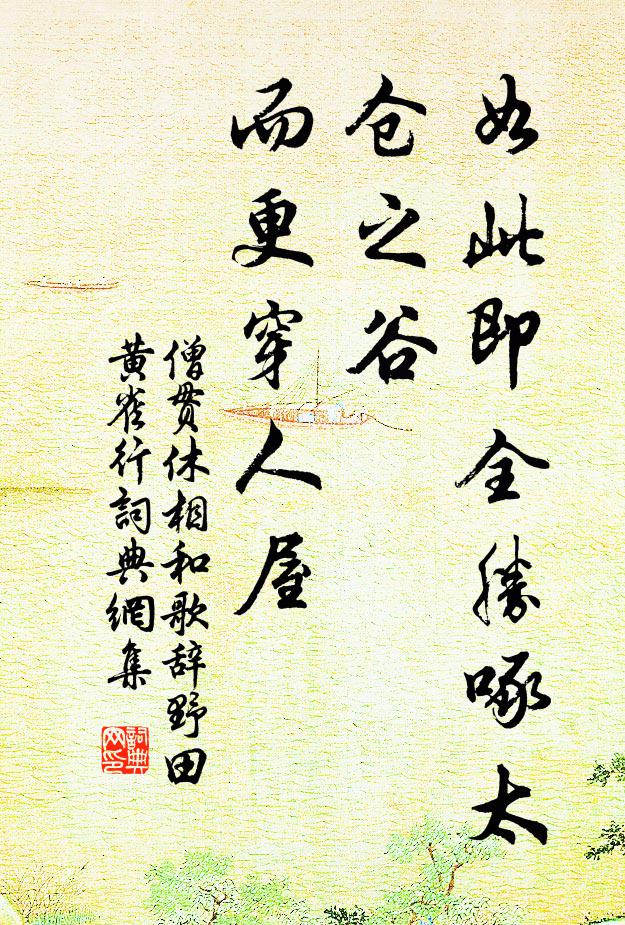 如此即全勝啄太
仓之谷
而更穿人屋
僧贯休相和歌辞野田
黄雀行詞典網集
詞典
网印